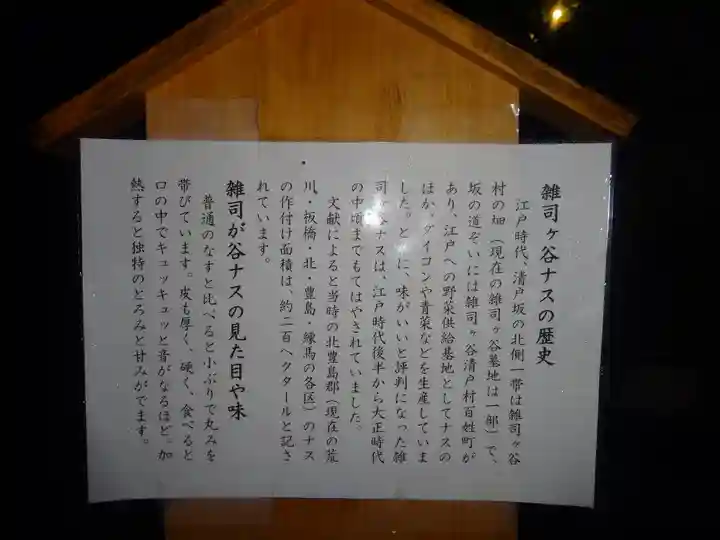 雑司ヶ谷ナスの歴史
江戸時代、清戸坂の北側一帯は雑司ヶ谷
村の畑（現在の雑司ヶ谷墓地は一部）で、
坂の道ぞいには雑司ヶ谷清戸村百姓町が
あり、江戸への野菜供給基地としてナスの
ほか、ダイコンや青菜などを生産していま
した。とくに、味がいいと評判になった雑
司ヶ谷ナスは、江戸時代後半から大正時代
の中頃までもてはやされていました。
文献によると当時の北豊島郡（現在の荒
川・板橋・北・豊島・練馬の各区）のナス
の作付け面積は、約二百ヘクタールと記さ
れています。
雑司が谷ナスの見た目や味
普通のなすと比べると小ぶりで丸みを
帯びています。皮も厚く、硬く、食べると
口の中でキュッキュッと音がなるほど。加
熱すると独特のとろみと甘みがでます。